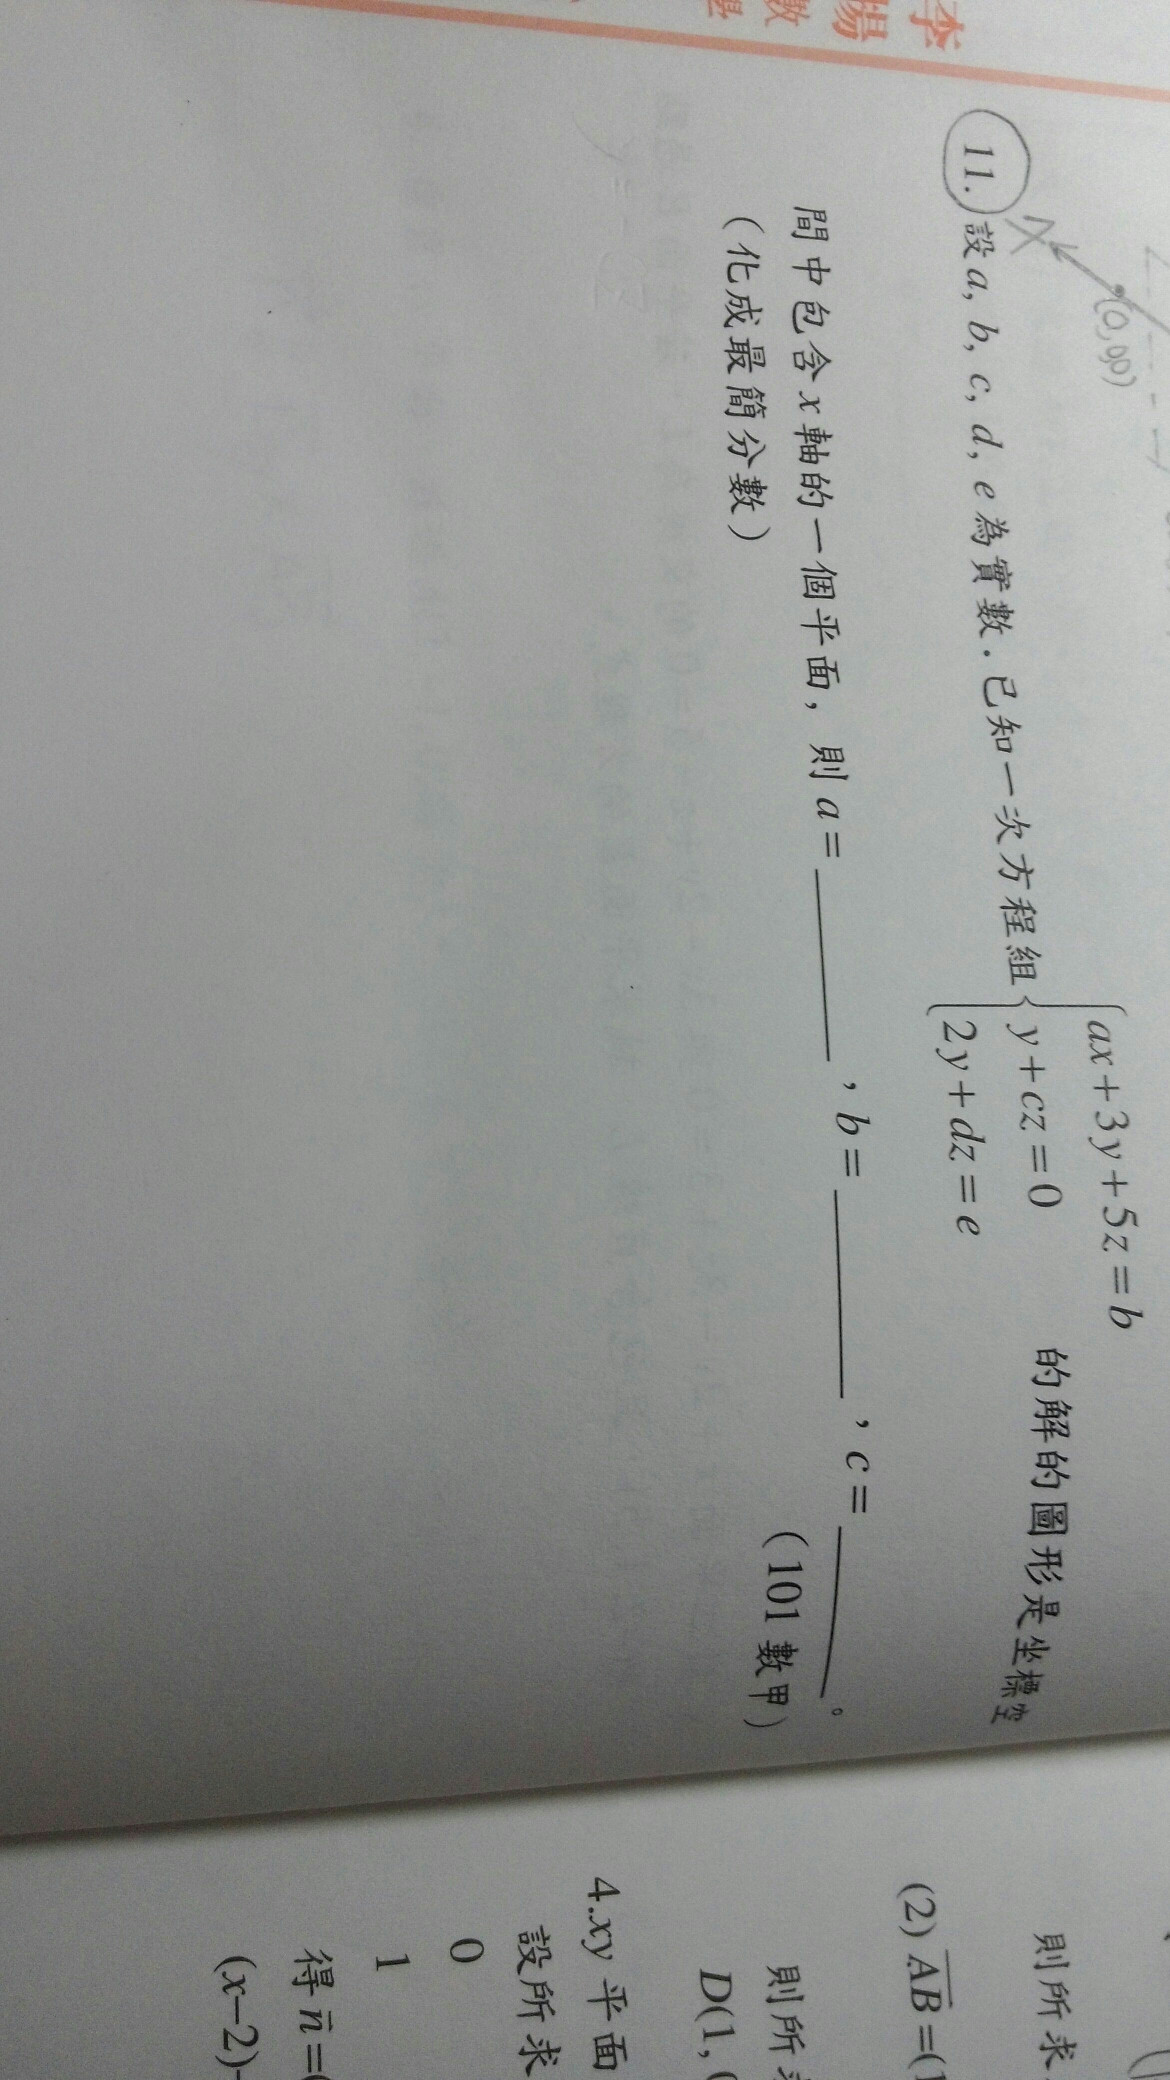 李
場
數
(0,0,0)
X
11. 設 a, b, c, d, e 為實數. 已知一次方程組 { ax+3y+5z=b
y+cz=0
2y+dz=e 的解的圖形是坐標空
間中包含 x 軸的一個平面, 則 a= ______ , b= ______ , c= ______ 。
(化成最簡分數) (101 數甲)
則所求
(2) AB=(1
則所
D(1, 
4. xy 平面
設所求
0
1
得 n=(
(x-2)